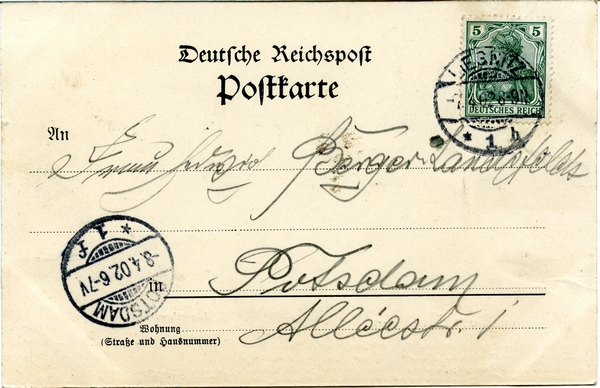 Deutsche Reichspost
Postkarte
5 5
DEUTSCHES REICH
LIEGNITZ
* 1 h
An
Berger
Potsdam
in
Alléestr. 1
Wohnung
(Straße und Hausnummer)
POTSDAM
-8.4.02.6-7V
* 1 f